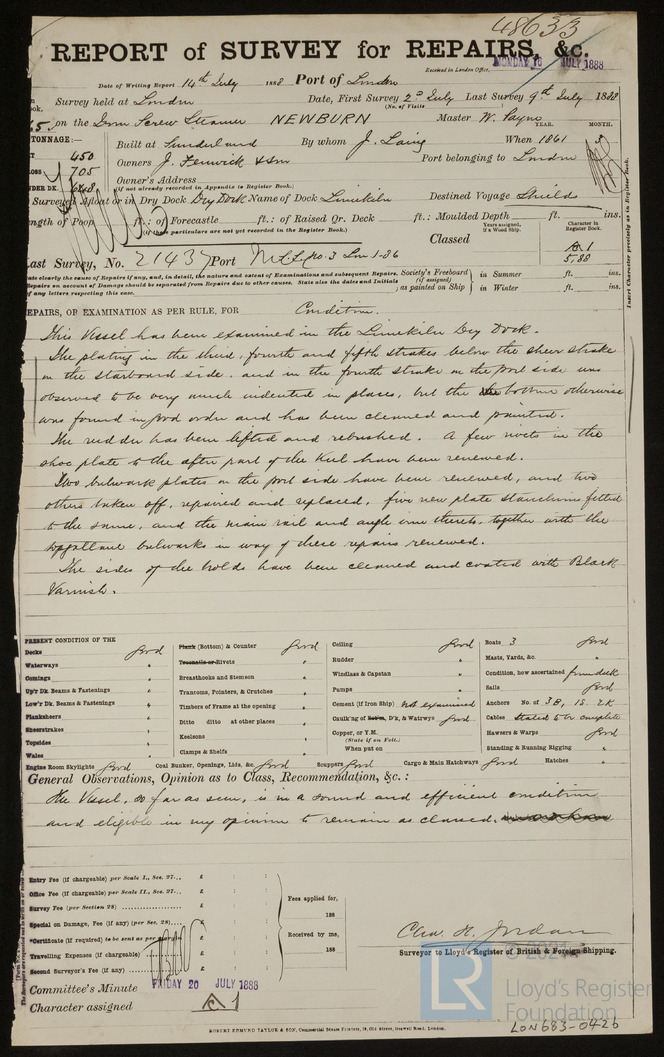 48633
REPORT of SURVEY for REPAIRS, &c.
Received in London Office, MONDAY 16 JULY 1888
Date of Writing Report 14th July 1888 Port of London
Survey held at London Date, First Survey 2d July Last Survey 9th July 1888
(No. of Visits
on the Iron Screw Steamer NEWBURN Master W. Payne
YEAR. MONTH.
TONNAGE:—
Built at Sunderland By whom J. Laing When 1861
450
Owners J. Fenwick & Son Port belonging to London
705
Owner's Address
(if not already recorded in Appendix to Register Book.)
Surveyed Afloat or in Dry Dock Dry Dock Name of Dock Limekiln Destined Voyage Shields
Length of Poop ft.: of Forecastle ft.: of Raised Qr. Deck ft.: Moulded Depth ft. ins.
(If these particulars are not yet recorded in the Register Book.)
Years assigned, if a Wood Ship.
Character in Register Book.
Classed
A 1
5,88
Last Survey, No. 21437 Port
Society's Freeboard (if assigned) as painted on Ship
in Summer ft. ins.
in Winter ft. ins.
State clearly the cause of Repairs if any, and, in detail, the nature and extent of Examinations and subsequent Repairs.
Repairs on account of Damage should be separated from Repairs due to other causes. State also the dates and Initials
of any letters respecting this case.
Insert Character precisely as in Register Book.
REPAIRS, OF EXAMINATION AS PER RULE, FOR Condition.
This Vessel has been examined in the Limekiln Dry Dock.
The plating in the third, fourth and fifth strakes below the sheer strake
on the starboard side, and in the fourth strake on the port side was
observed to be very much indented in places, but the bottom otherwise
was found in good order and has been cleaned and painted.
The rudder has been lifted and rebushed. A few rivets in the
shoe plate to the after part of the Keel have been renewed.
Two bulwark plates on the port side have been renewed, and two
others taken off, repaired and replaced, five new plate stanchions fitted
to the same, and the main rail and angle iron thereto, together with the
topgallant bulwarks in way of these repairs renewed.
The sides of the holds have been cleaned and coated with Black
Varnish.
PRESENT CONDITION OF THE
Decks good
Waterways "
Comings "
Up'r Dk. Beams & Fastenings "
Low'r Dk. Beams & Fastenings "
Planksheers "
Sheerstrakes "
Topsides "
Wales "
Engine Room Skylights good
Plank (Bottom) & Counter good
Treenails or Rivets "
Breasthooks and Stemson "
Transoms, Pointers, & Crutches "
Timbers of Frame at the opening "
Ditto ditto at other places "
Keelsons "
Clamps & Shelfs "
Coal Bunker, Openings, Lids, &c. good
Ceiling good
Rudder "
Windlass & Capstan "
Pumps "
Cement (if Iron Ship) not examined
Caulk'ng of Bot'm, D'k, & Watrwys good
Copper, or Y.M.
(State if on Felt.)
When put on
Scuppers good Cargo & Main Hatchways good
Boats 3 good
Masts, Yards, &c. "
Condition, how ascertained from deck
Sails good
Anchors No. of 3B, 1S. 2K
Cables stated to be complete
Hawsers & Warps good
Standing & Running Rigging "
Hatches "
General Observations, Opinion as to Class, Recommendation, &c.:
The Vessel, so far as seen, is in a sound and efficient condition
and eligible in my opinion to remain as classed.
Entry Fee (if chargeable) per Scale I., Sec. 27... £ : :
Office Fee (if chargeable) per Scale II., Sec. 27... £ : :
Survey Fee (per Section 28) £ : :
Special on Damage, Fee (if any) (per Sec. 28) £ : :
*Certificate (if required) to be sent as per margin £ : :
Travelling Expenses (if chargeable) £ : :
Second Surveyor's Fee (if any) £ : :
Fees applied for,
188
Received by me,
188
Chas. H. Jordan
Surveyor to Lloyd's Register of British & Foreign Shipping.
Committee's Minute FRIDAY 20 JULY 1888
Character assigned A 1
ROBERT EDMUND TAYLOR & SON, Commercial Steam Printers, 19, Old Street, Goswell Road, London.
LR
Lloyd's Register
Foundation
LON683-0426